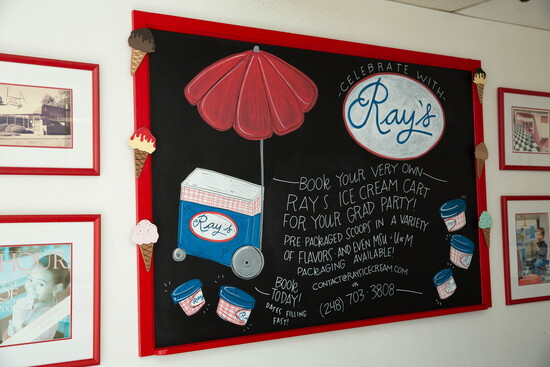 CELEBRATE WITH
Ray's
BOOK YOUR VERY OWN
RAY'S ICE CREAM CART
FOR YOUR GRAD PARTY!
PRE PACKAGED SCOOPS IN A VARIETY
OF FLAVORS AND EVEN MSU + U of M
PACKAGING AVAILABLE!
CONTACT@RAYSICECREAM.COM
OR
(248) 703-3808
BOOK
TODAY!
DATES FILLING
FAST!
Ray's
Ray's